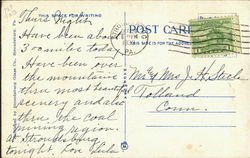 THIS SPACE FOR WRITING
POST CARD
THIS SIDE IS FOR THE ADDRESS
PA.
Thurs. Night.
Have been about
300 miles today.
Have been over
the mountains
thru most beautiful
scenery and also
thru the coal
mining region.
at Stroudsburg
tonight. Love
Mr & Mrs J. H. Steele
Tolland
Conn.